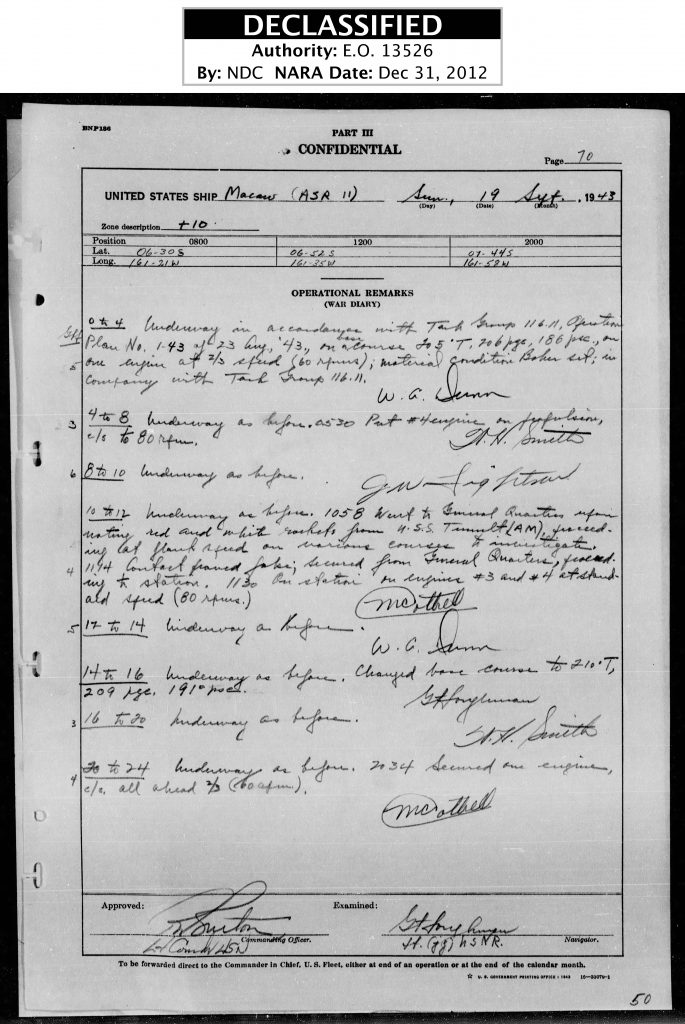 DECLASSIFIED
Authority: E.O. 13526
By: NDC NARA Date: Dec 31, 2012
BNP186
PART III
CONFIDENTIAL
Page 70
UNITED STATES SHIP Macaw (ASR 11) Sun., 19 Sept. 1943
(Day) (Date) (Month)
Zone description +10
Position 0800 1200 2000
Lat. 06-30S 06-52S 07-44S
Long. 161-21W 161-35W 161-58W
OPERATIONAL REMARKS
(WAR DIARY)
0 to 4 Underway in accordance with Task Group 116.11, Operation
Plan No. 1-43 of 23 Aug, '43, on base course 205°T, 206 pgc, 186 psc, on
5 one engine at 2/3 speed (60 rpms); material condition Baker set; in
company with Task Group 116.11.
W. A. Dunn
3 4 to 8 Underway as before. 0530 Put #4 engine on propulsion,
c/s to 80 rpm.
H. H. Smith
6 8 to 10 Underway as before.
10 to 12 Underway as before. 1058 Went to General Quarters upon
noting red and white rockets from U.S.S. Tumult (AM), proceed-
ing at flank speed on various courses to investigate.
4 1114 Contact proved false; secured from General Quarters, proceed-
ing to station. 1130 On station on engines #3 and #4 at stand-
ard speed (80 rpms.)
5 12 to 14 Underway as before.
W. A. Dunn
14 to 16 Underway as before. Changed base course to 210°T,
209 pgc. 191° psc.
3 16 to 20 Underway as before.
H. H. Smith
4 20 to 24 Underway as before. 2034 Secured one engine,
c/s. all ahead 2/3 (60 rpm).
Approved: Examined:
Lt Comdr USN Commanding Officer. Lt. (jg) USNR. Navigator.
To be forwarded direct to the Commander in Chief, U. S. Fleet, either at end of an operation or at the end of the calendar month.
☆ U. S. GOVERNMENT PRINTING OFFICE : 1943
50